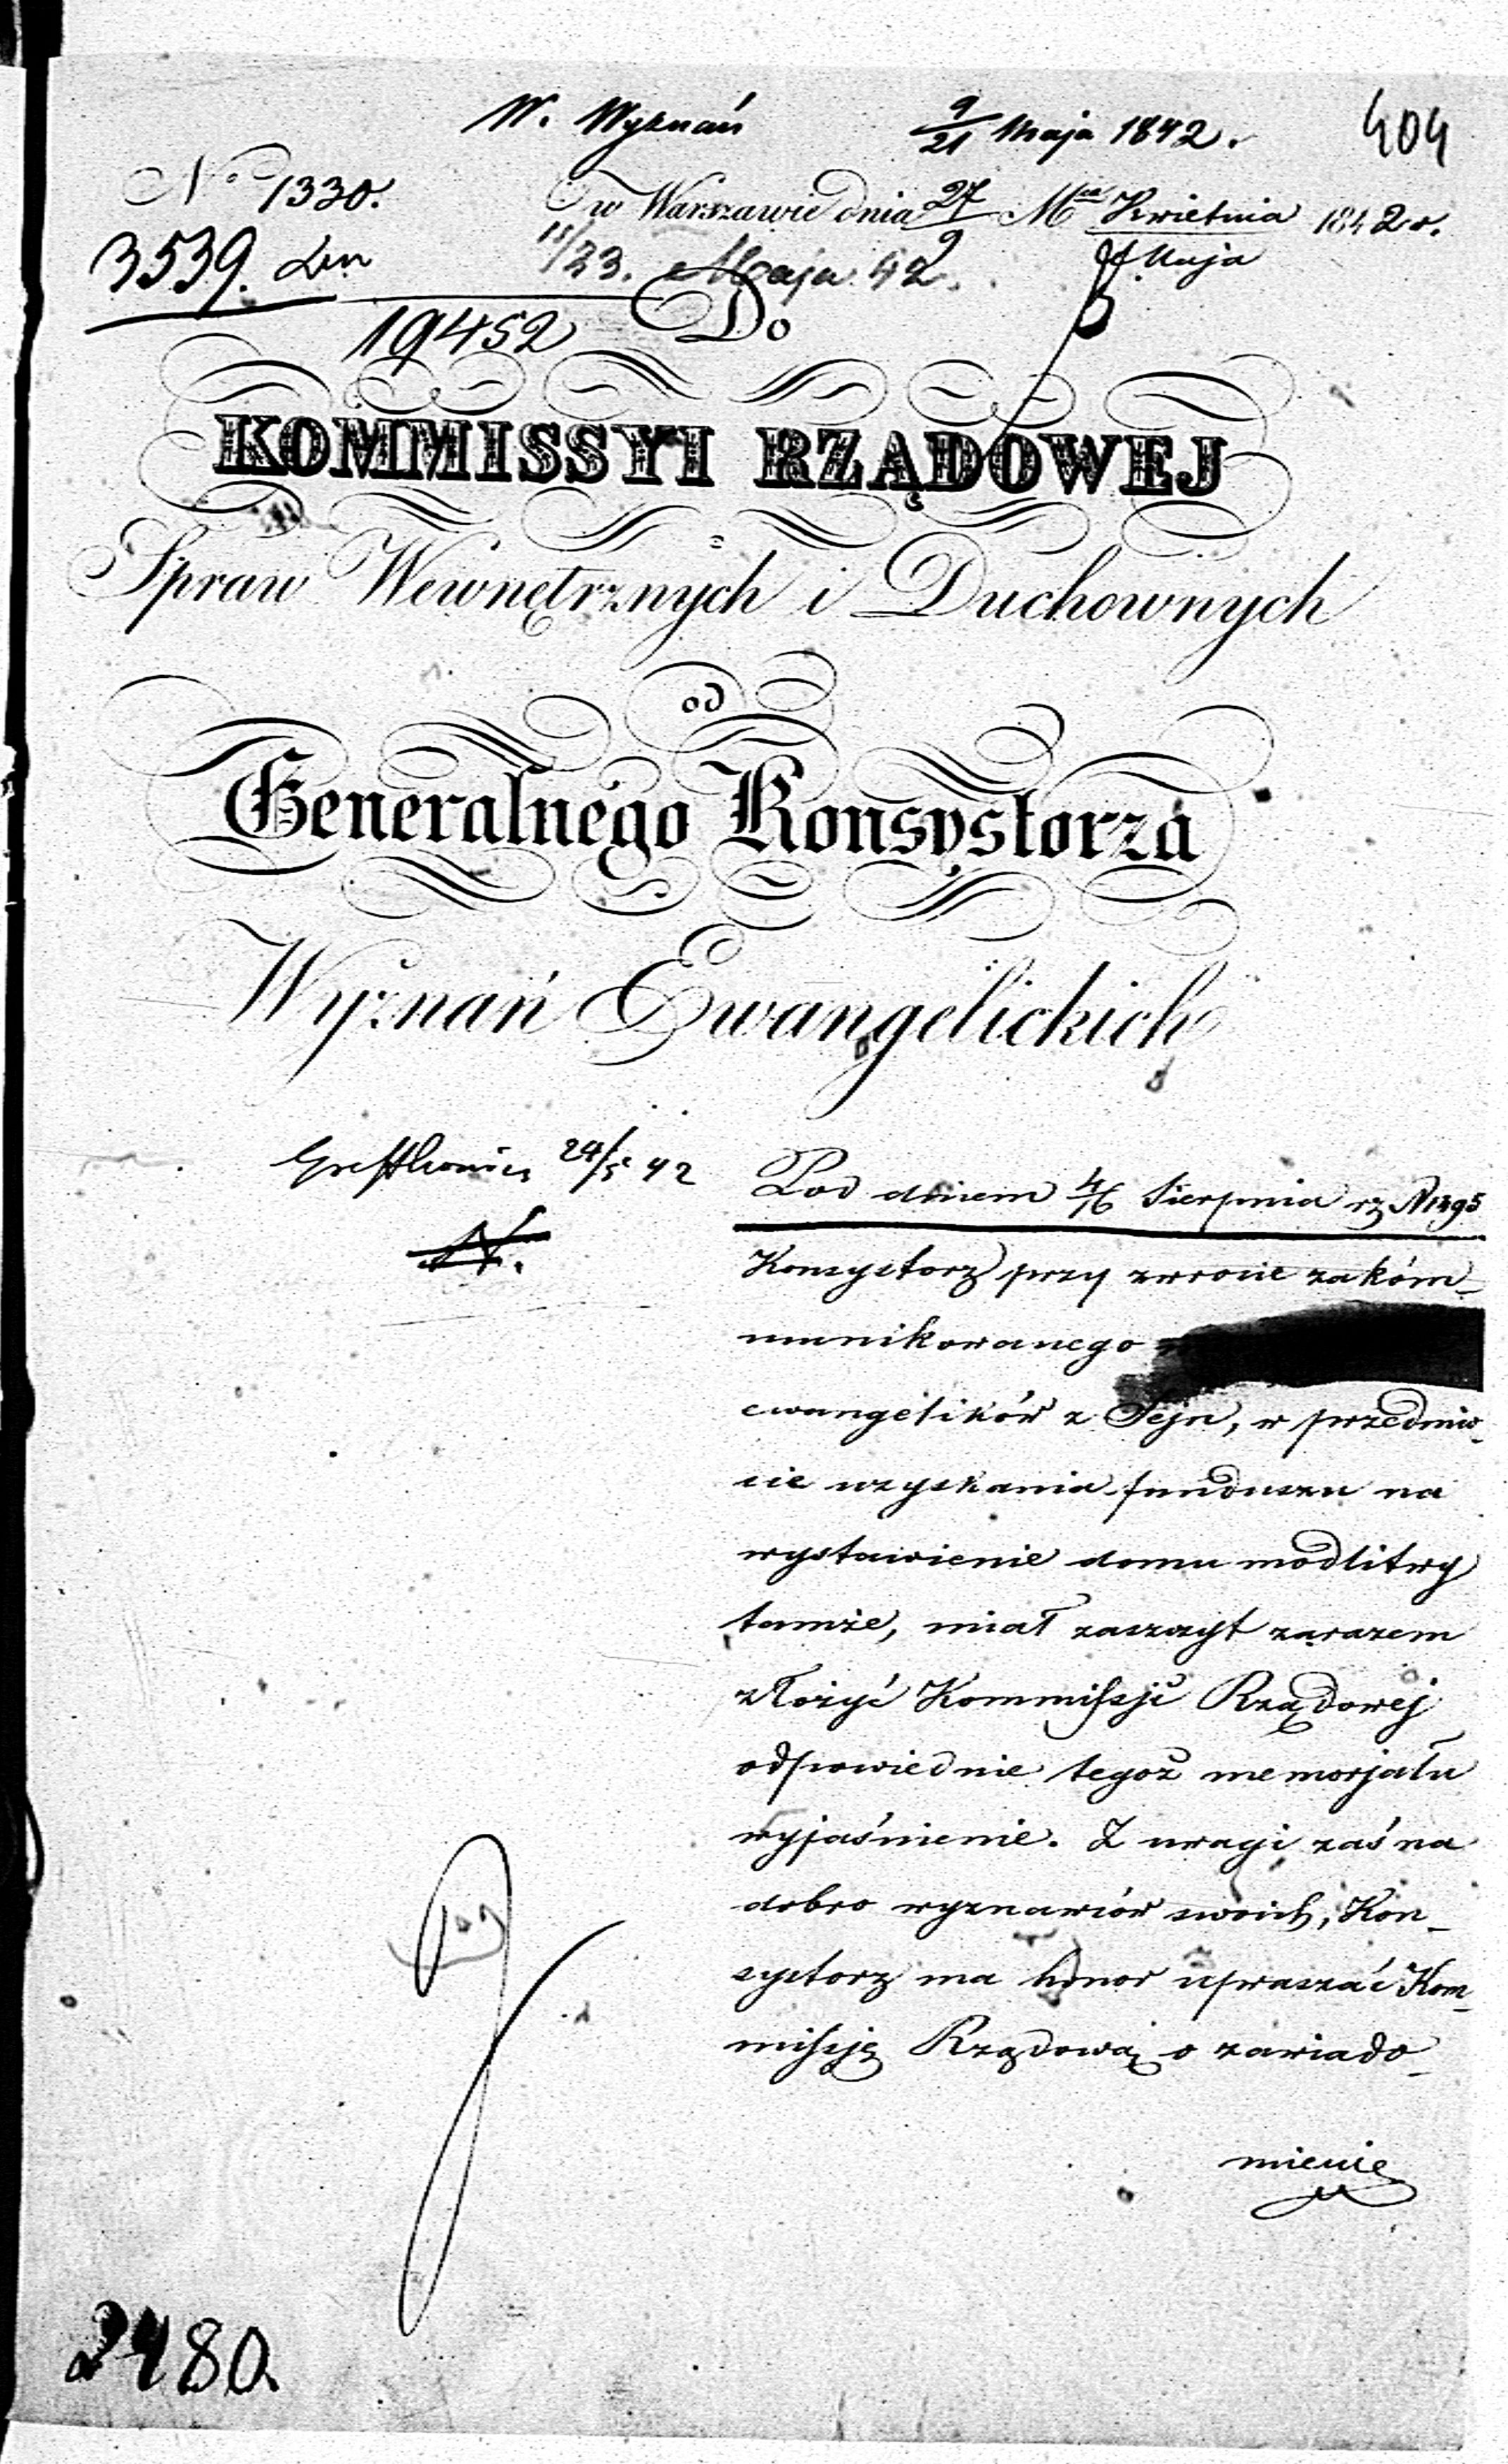 W. Wyznań 9/21 Maja 1842. 404
No 1330. w Warszawie dnia 27/9 Mca Kwietnia/Maja 1842 r.
3539. 11/23. Maja 42.
19452 Do
KOMMISSYI RZĄDOWEJ
Spraw Wewnętrznych i Duchownych
od
Generalnego Konsystorza
Wyznań Ewangelickich
24/5 42
Pod dniem 4/16 Sierpnia rz N 1395
Konsystorz przy zwrocie zakóm-
munikowanego
ewangelików z Sejn, w przedmio-
cie uzyskania funduszu na
wystawienie domu modlitwy
tamże, miał zaszczyt zarazem
złożyć Kommissji Rządowej
odpowiednie tegoż memorjału
wyjaśnienie. Z uwagi zaś na
dobro wyznawców swoich, Kon-
systorz ma honor upraszać Kom-
missję Rządową o zawiado-
mienie
2480.